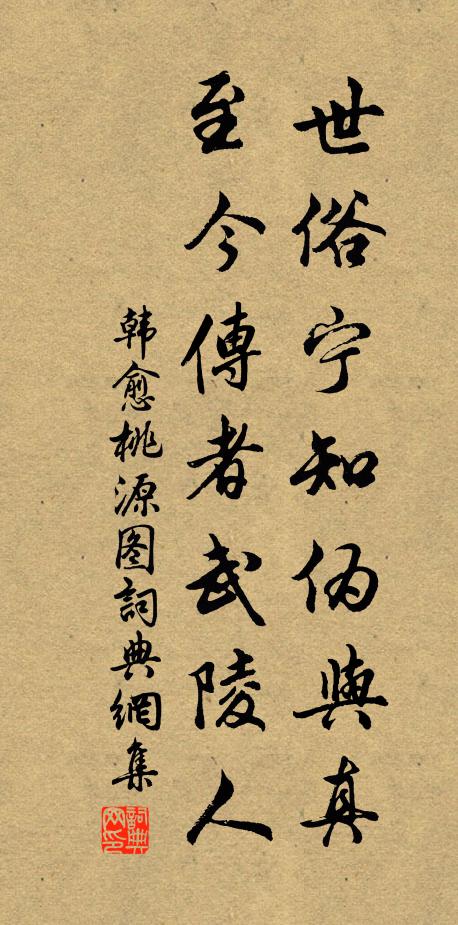 世俗宁知伪與真
至今傳者武陵人
韩愈桃源图詞典網集
詞典网印